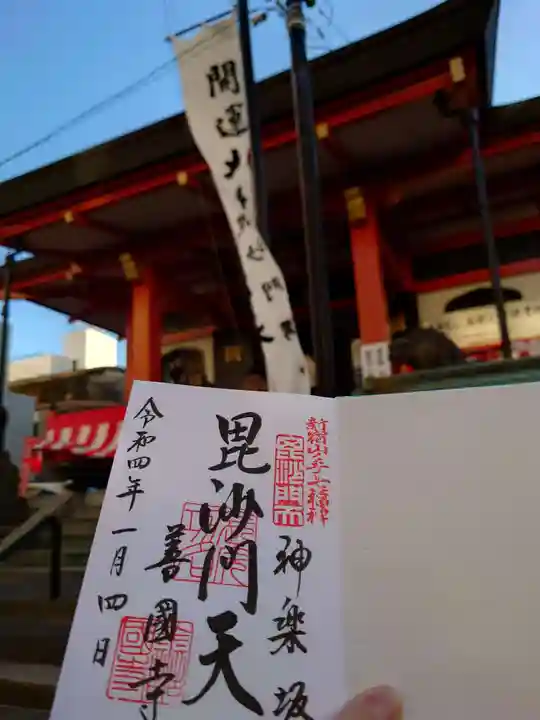 開運大毘沙門天
新宿山手七福神
毘沙門天
神楽坂
毘沙門天
善國寺
令和四年一月四日